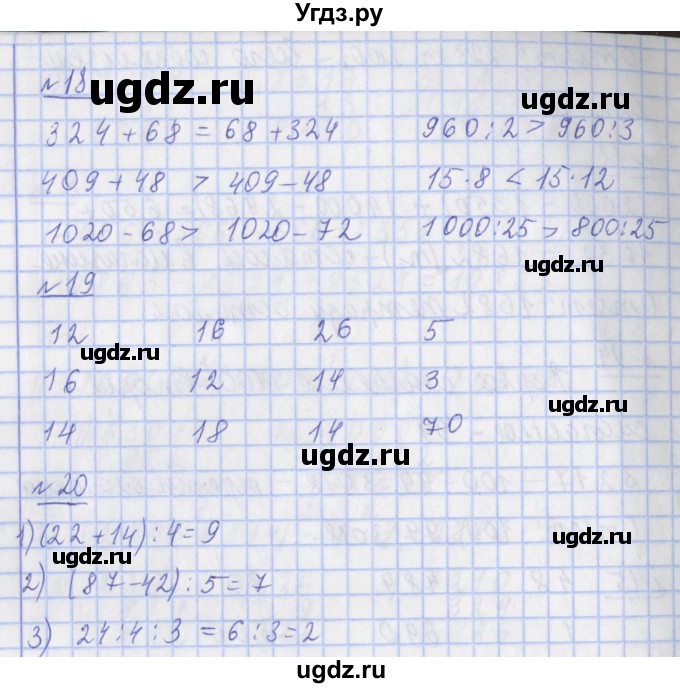 Угдз.ру
№18
ugdz.ru
324 + 68 = 68 + 324 960 : 2 > 960 : 3
ugdz.ru
409 + 48 > 409 - 48 15 · 8 < 15 · 12
1020 - 68 > 1020 - 72 1000 : 25 > 800 : 25
ugdz.ru
№19
12 16 26 5
ugdz.ru
16 12 14 3
ugdz.ru
14 18 14 70
ugdz.ru
№20
1) (22 + 14) : 4 = 9
ugdz.ru
ugdz.ru
2) (87 - 42) : 5 = 7
3) 24 : 4 : 3 = 6 : 3 = 2
ugdz.ru
ugdz.ru